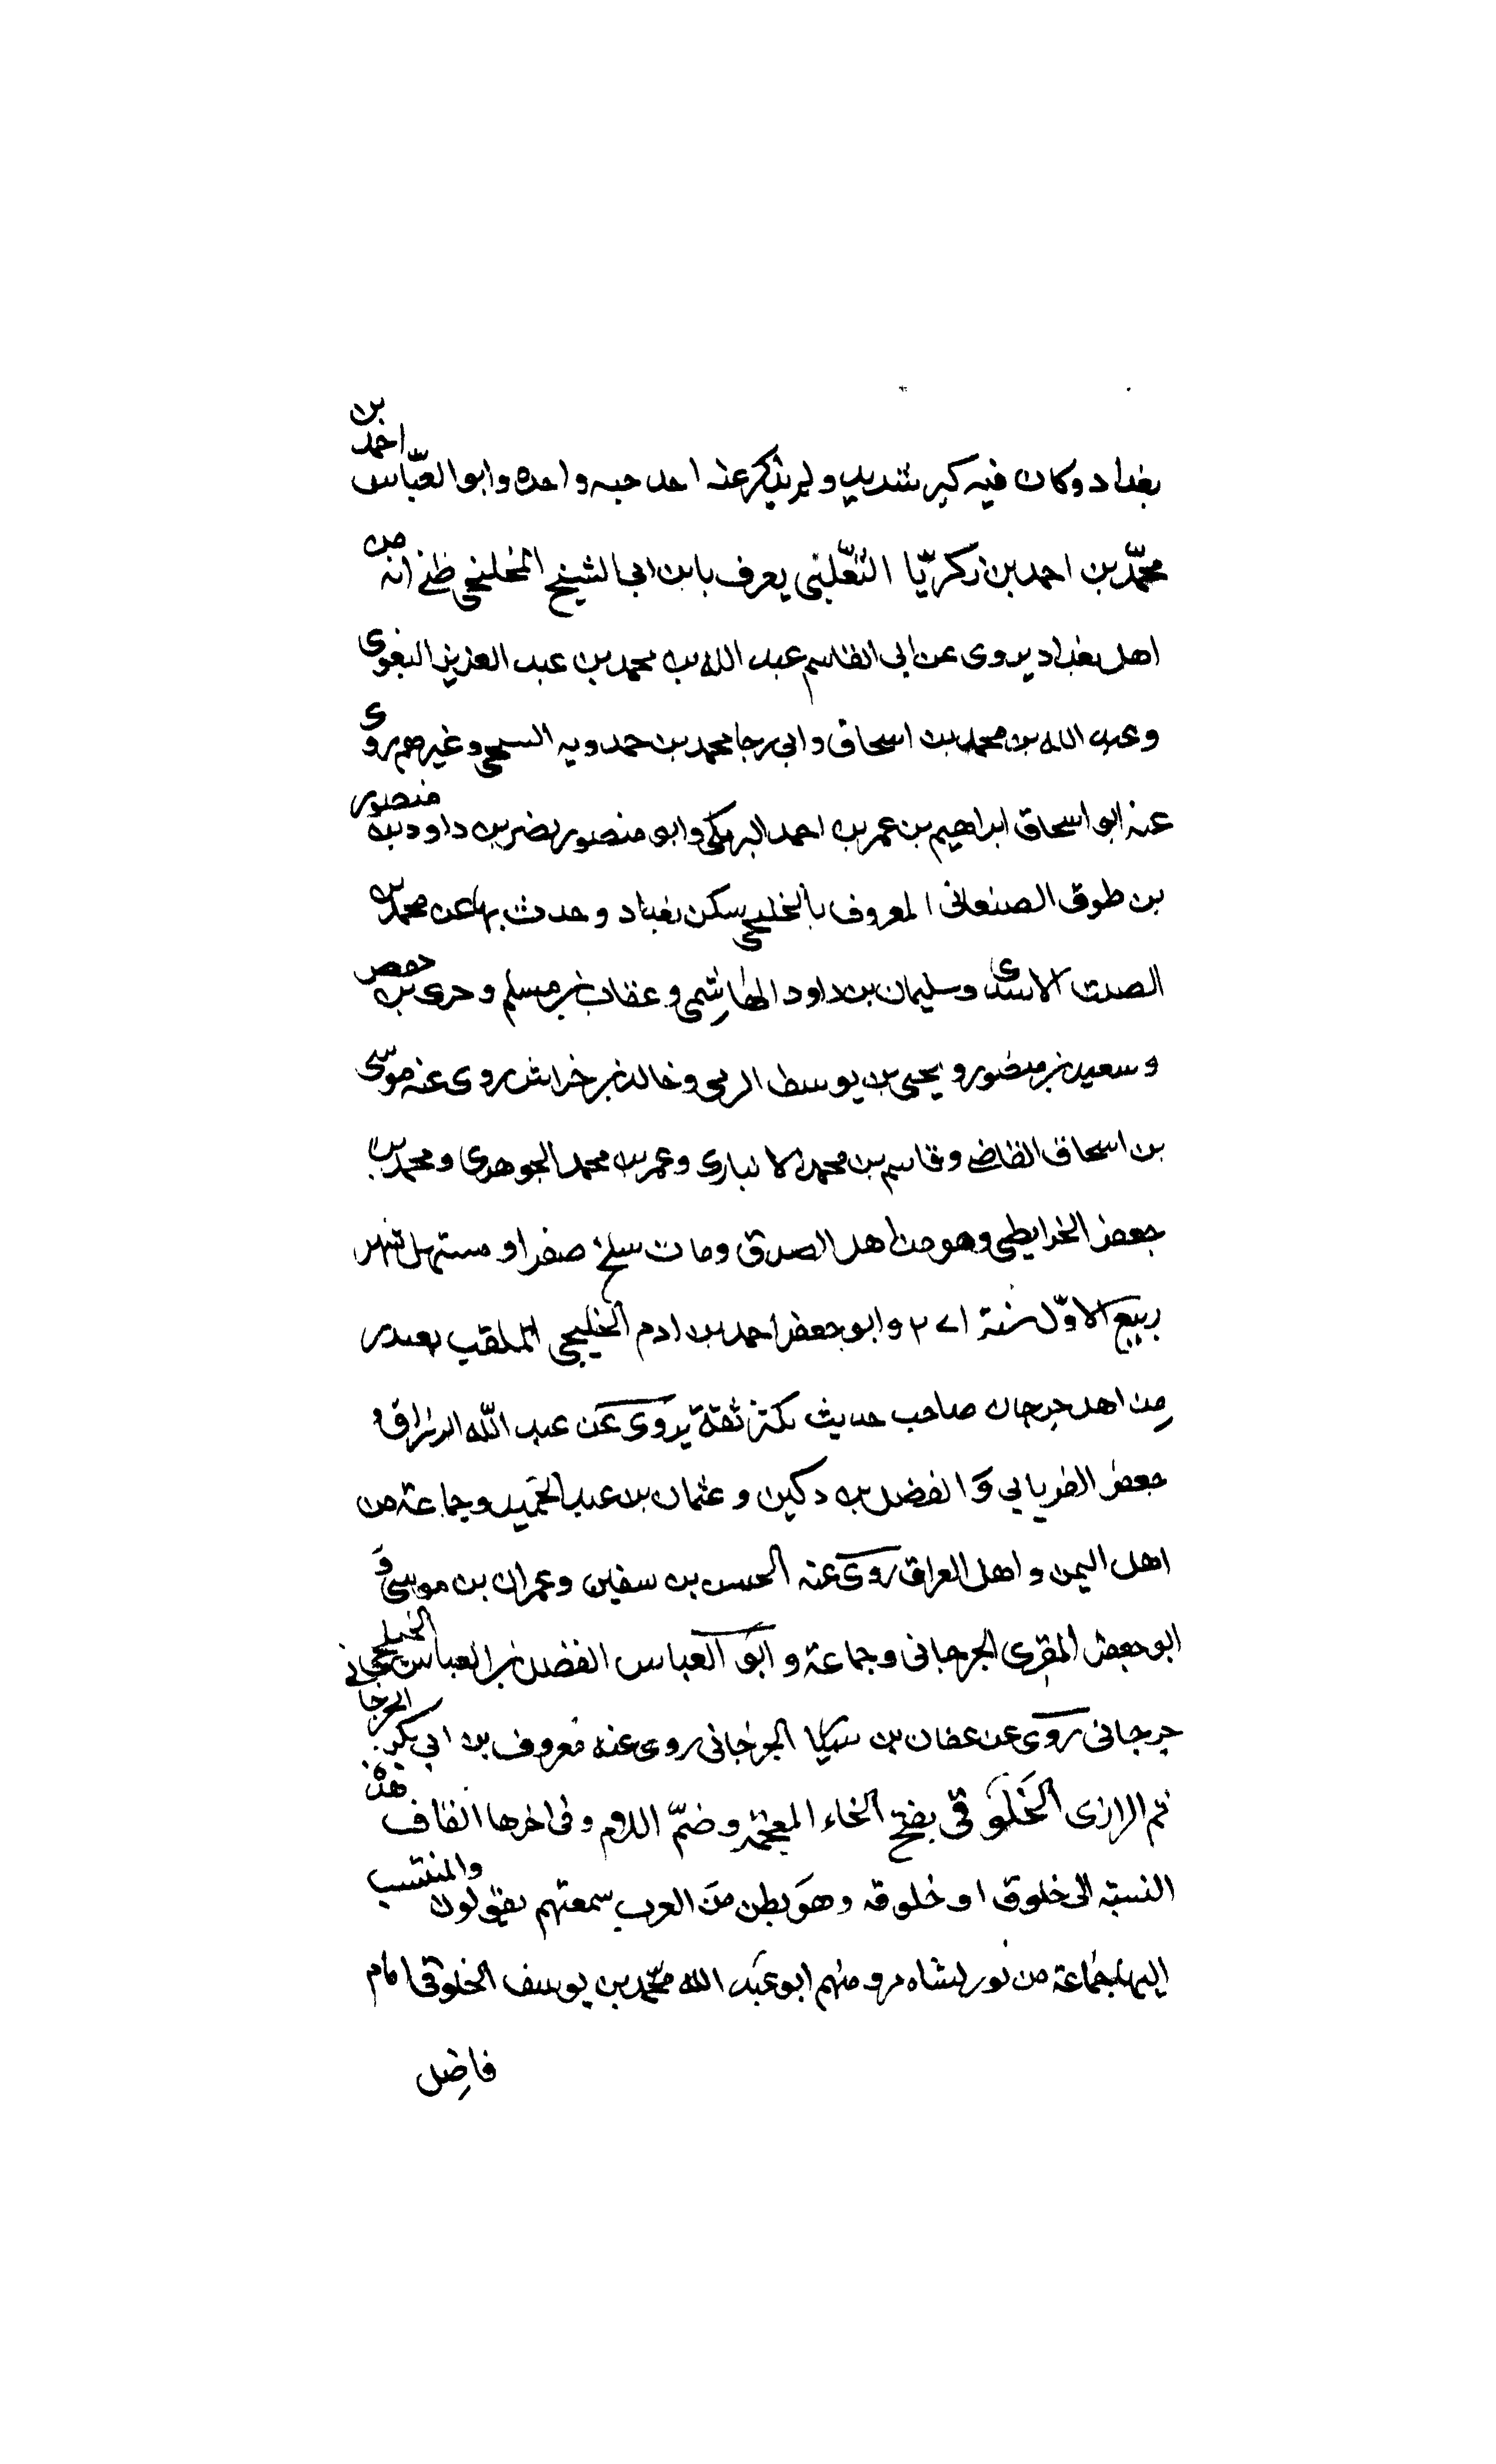 بغداد وكان فيه كبر شديد ولم يذكر عنه احد حبه واحده وابو العبّاس احمد بن
محمّد بن احمد بن زكريّا الثعّلبى يعرف بابن ابى الشيخ الخلنجى ظنى انه من
اهل بغداد يروى عن ابى القاسم عبد الله بن محمد بن عبد العزيز البغوى
وعبد الله بن محمد بن اسحاق وابى رجا محمد بن حمدويه السبحى وغيرهم روى
عنه ابو اسحاق ابراهيم بن عمر بن احمد البرمكى وابو منصور نصر بن داود بن منصور
بن طوق الصنعانى المعروف بالخلنجى سكن بغداد وحدث بها عن محمد بن
الصلت الاسدى وسليمان بن داود الهاشمى وعفان بن مسلم وحرى بن حفص
وسعيد بن منصور ويحيى بن يوسف الرمى وخالد بن خراش روى عنه موسى
بن اسحاق القاضى وقاسم بن محمد الانبارى وعمر بن محمد الجوهرى ومحمد بن
جعفر الخرايطى وهو من اهل الصدق ومات سلخ صفر او مستهل شهر
ربيع الاوّل سنة ٢٧١ وابو جعفر احمد بن ادم الخليجى الملقب بعندر
من اهل جرجان صاحب حديث مكثر ثقة يروى عن عبد الله الرزاق و
جعفر الفريابي وَ الفضل بن دكين وعثمان بن عبد الحميد وجماعة من
اهل اليمن واهل العراق روى عنه الحسن بن سفين وعمران بن موسى وَ
ابو جعفر المقرى الجرجانى وجماعة وابو العباس الفضل بن العباس الخليجى
جرجانى روى عن عفان بن الجرجانى روى عنه معروف بن ابى بكر الجرجانى
ثم الرازى الخَلَوقى بفتح الخاء المعجمة وضمّ اللام وفى اخرها القاف هذه
النسبة الى خلوق او خلوقه وهو بطن من العرب سمعتهم يقولون والمنتسب
اليها جماعة من مرو منهم ابو عبد الله محمّد بن يوسف الخلوقى امام
فاضل